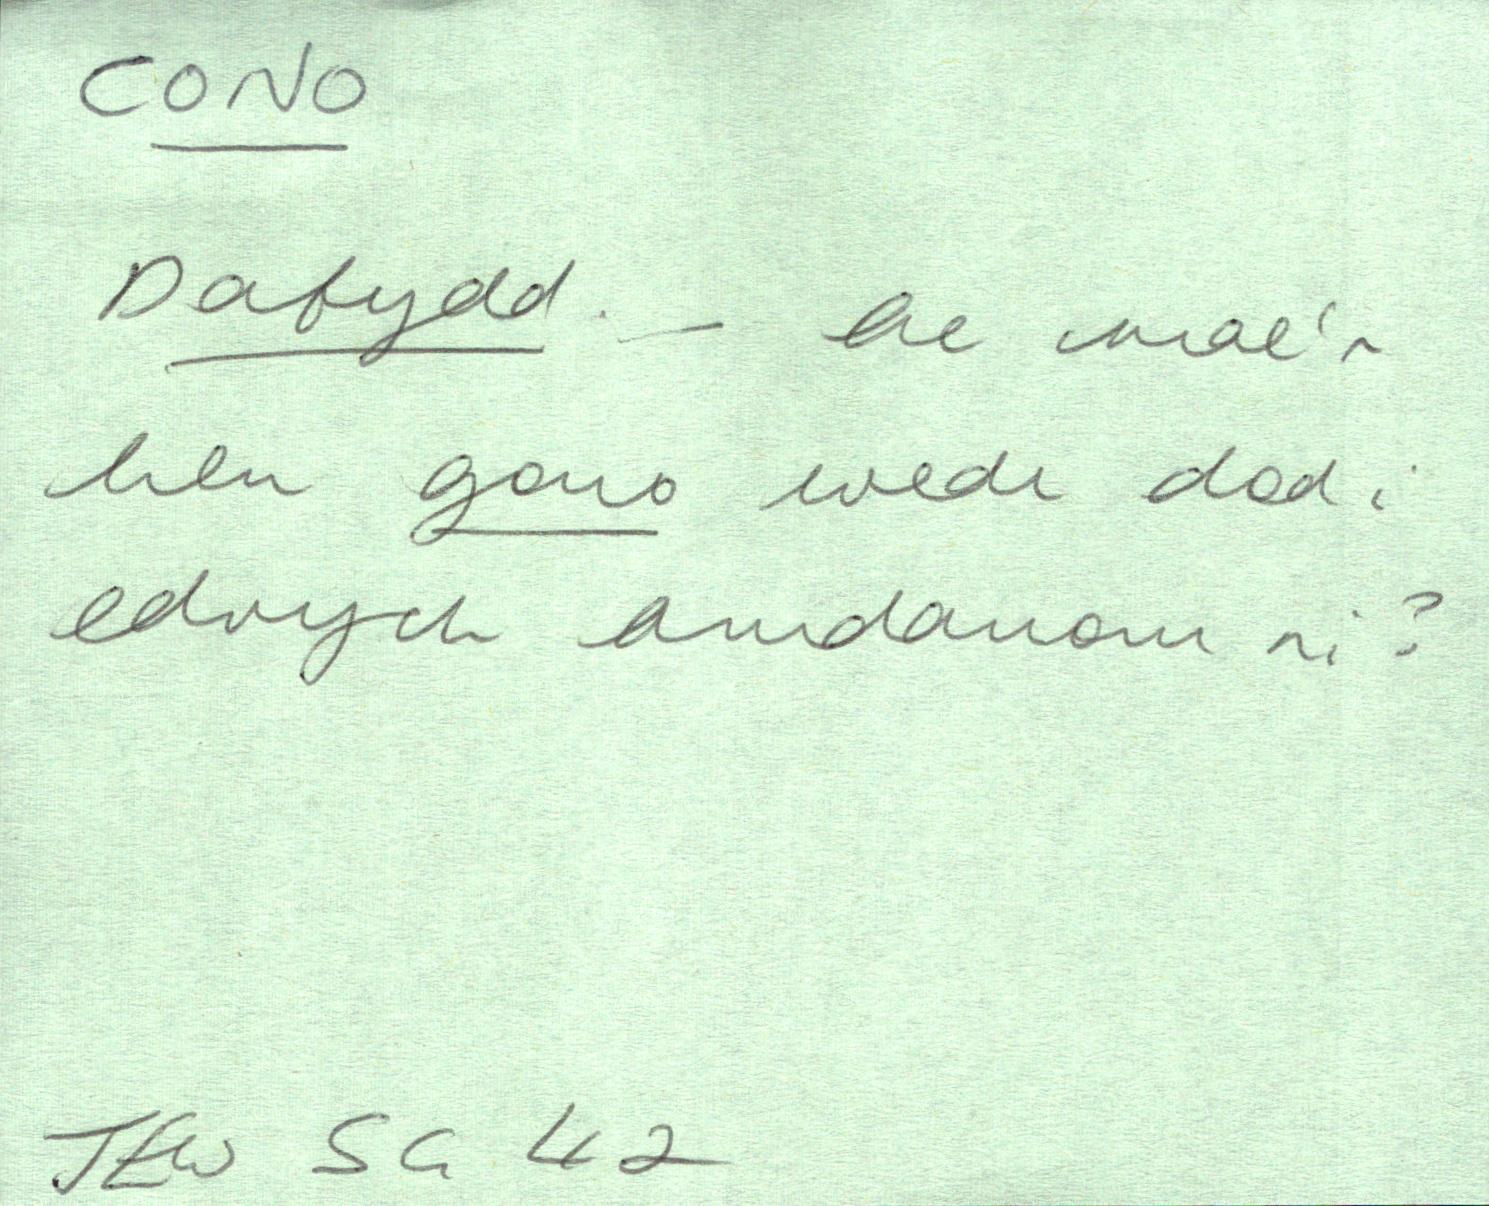 CONO
Dafydd. — be mae'r
hen gono wedi dod i
edrych amdanom ni?
JEW SG 42